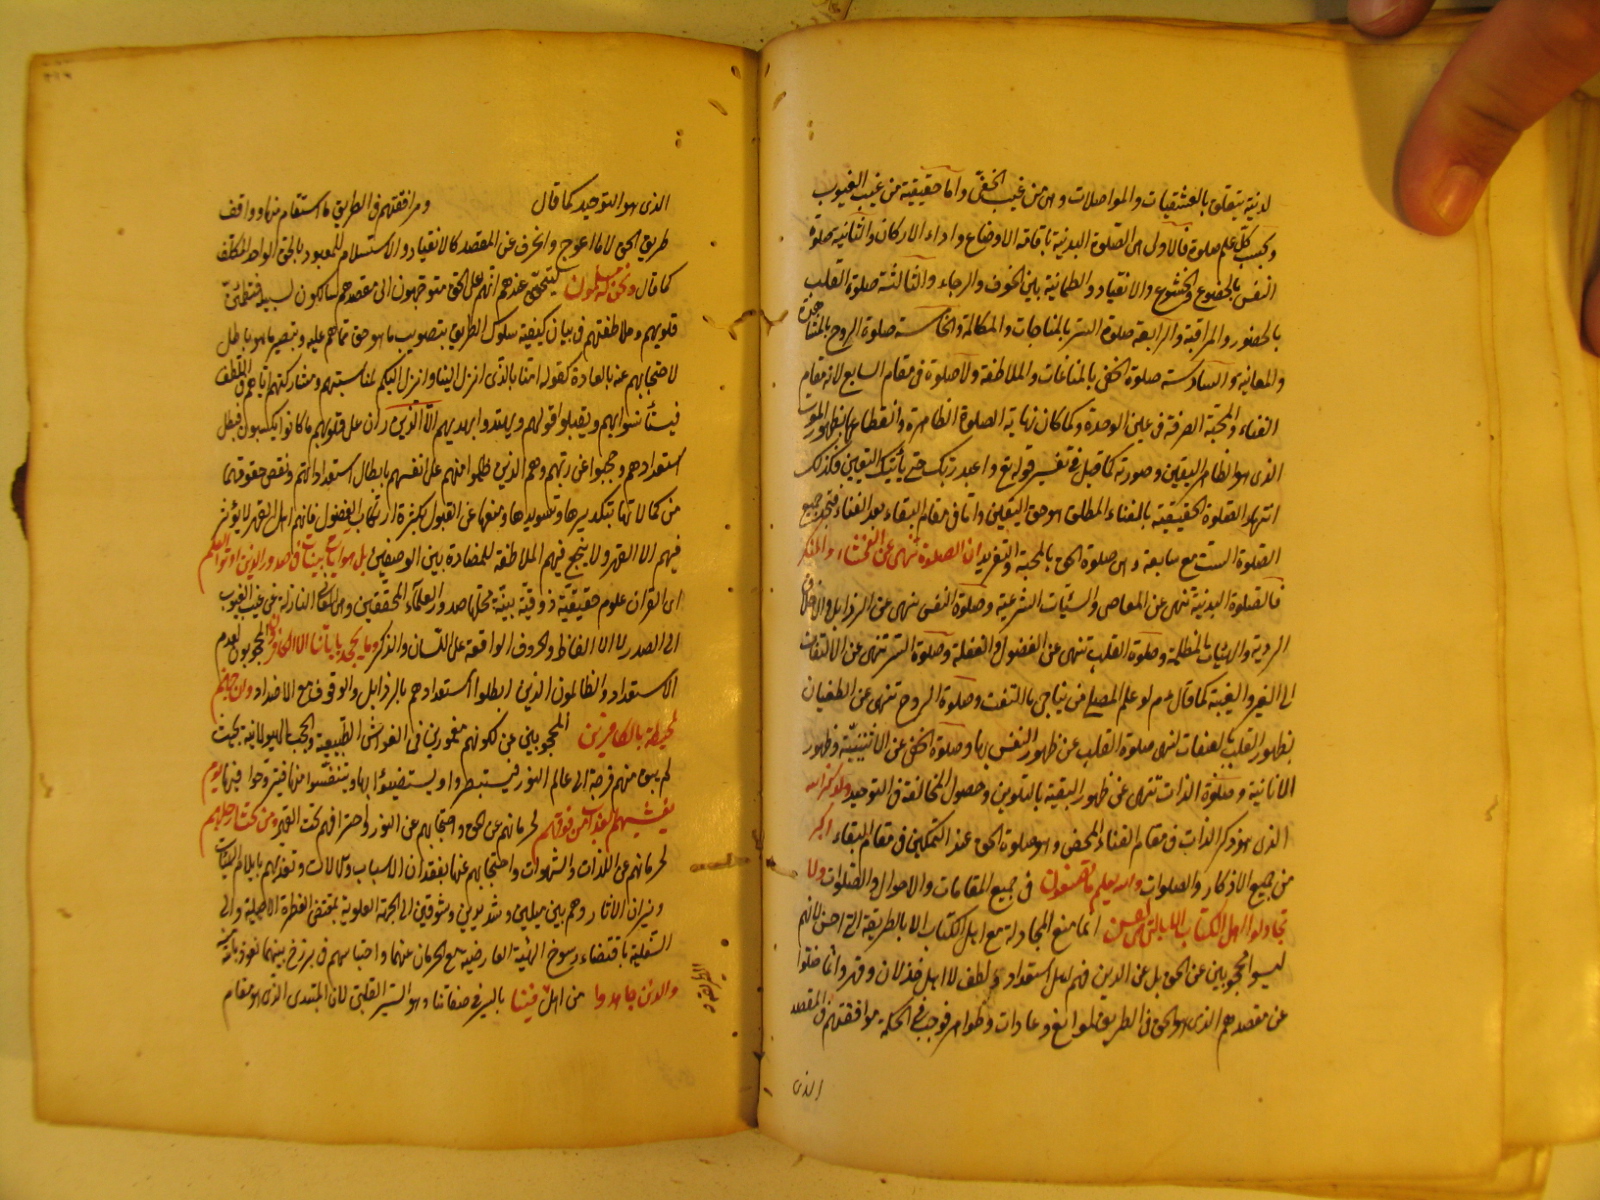 لدنية يتعلق بالعشقيات والمواصلات وهى من غيب الخفى واما حقيقية من غيب الغيوب
وبحسب كل علم صلوة فالاول هى الصلوة البدنية باقامة الاوضاع واداء الاركان والثانية صلوة
النفس بالخضوع والخشوع والانقياد والطمانية بين الخوف والرجاء والثالثة صلوة القلب
بالحضور والمراقبة والرابعة صلوة السر بالمناجات والمكالمة والخامسة صلوة الروح بالمشاهدة
والمعاينة والسادسة صلوة الخفى بالمناغات والملاطفة ولا صلوة فى مقام السابع لانه مقام
الفناء والمحبة الصرفة فى عين الوحدة وكما كان نهاية الصلوة الظاهرة وانقطاعها بظهور الموت
الذى هو ظاهر اليقين وصورته كما قيل فى تفسير قوله تع واعبد ربك حتى يأتيك اليقين فكذلك
انتهاء الصلوة الحقيقية بالفناء المطلق هو حق اليقين واما فى مقام البقاء بعد الفناء فيتجدد جميع
الصلوة الست مع سابعة وهى صلوة الحق بالمحبة والتفريد ان الصلوة تنهى عن الفحشاء والمنكر
فالصلوة البدنية تنهى عن المعاصى والسيئات الشرعية وصلوة النفس تنهى عن الرذايل والاخلاق
الردية والهيئات المظلمة وصلوة القلب تنهى عن الفضول والغفلة وصلوة السر تنهى عن الالتفات
الى الغير والغيبة كما قال ع م لو علم المصلى من يناجى ما التفت وصلوة الروح تنهى عن الطغيان
بظهور القلب بالصفات كنهى صلوة القلب عن ظهور النفس بها وصلوة الخفى عن الاثنينية وظهور
الانانية وصلوة الذات تنهى عن ظهور البقية بالتلوين وحصول المخالفة فى التوحيد ولذكر الله
الذى هو ذكر الذات فى مقام الفناء المحض وهو صلوة الحق عند التمكين فى مقام البقاء اكبر
من جميع الاذكار والصلوات والله يعلم ما تصنعون فى جميع المقامات والاحوال والصلوات ولا
تجادلوا اهل الكتاب الا بالتى هى احسن انما منع المجادلة مع اهل الكتاب الا بالطريقة التى احسن لانهم
ليسوا محجوبين عن الحق بل عن الدين فهم اهل استعداد ولطف لا اهل خذلان وقهر وانما ضلوا
عن مقصدهم الذى هو الحق فى الطريق لموانع وعادات وظواهر فوجب فى الحكمة موافقتهم فى المقصد
الذى
الذى هو التوحيد كما قال ومرافقتهم فى الطريق ما استقام منها ووافق
طريق الحق لا ما اعوج وانحرف عن المقصد كالانقياد والاستسلام للمعبود بالحق الواحد المطلق
كما قال ونحن له مسلمون ليتحقق عندهم انهم على الحق متوجهون الى مقصدهم سالكون لسبيله فتطمئن
قلوبهم وملاطفتهم فى بيان كيفية سلوك الطريق بتصويب ما هو حق مما هم عليه وتبصير ما هو باطل
لاحتجابهم عنه بالعادة كقوله امنا بالذى انزل الينا وانزل اليكم لمناسبتهم ومشاركتهم اياهم فى اللطف
فيستأنسوا بهم ويقبلوا قولهم ويهتدوا بهديهم الا الذين ران على قلوبهم ما كانوا يكسبون فبطل
استعدادهم وحجبوا عن ربهم وهم الذين ظلموا منهم على انفسهم بابطال استعداداتهم ونقص حقوقها
من كمالاتها بتكديرها وتسويدها ومنعها عن القبول بكثرة ارتكاب الفضول فانهم اهل القهر لا يؤثر
فيهم الا القهر ولا ينجع فيهم الملاطفة للمضادة بين الوصفين بل هو ايات بينات فى صدور الذين اوتوا العلم
اى القران علوم حقيقية ذوقية بينة محلها صدور العلماء المحققين وهى المعانى النازلة من غيب الغيوب
الى الصدر لا الالفاظ والحروف الواقعة على اللسان والذكر وما يجحد باياتنا الا الكافرون المحجوبون لعدم
الاستعداد والظالمون الذين ابطلوا استعدادهم بالرذايل والوقوف مع الاضداد وان جهنم
لمحيطة بالكافرين المحجوبين من لكونهم مغمورين فى الغواشى الطبيعية والحجب الهيولانية بحيث
لم يبق منهم فرجة الى عالم النور فيستبصروا ويستضيئوا بها ويتنفسوا منها فيتروحوا فيها يوم
يغشيهم العذاب من فوقهم لحرمانهم عن الحق واحتجابهم عن النور واحتراقهم تحت القهر ومن تحت ارجلهم
لحرمانهم عن اللذات والشهوات واحتجابهم عنها بفقدان الاسباب والالات وتعذبهم بايلام الهيئات
ونيران الاثار وهم بين ميلين شديدين ومشوقين الى الجهة العلوية بمقتضى الفطرة الاصلية والى
السفلية باقتضاء رسوخ الهيئة العارضية مع الحرمان عنهما واحتباسهم فى برزخ بينهما نعوذ بالله
والذين جاهدوا من اهل الطريقة فينا بالسير فى صفاتنا وهو السير القلبى لان المبتدى الذى هو مقام